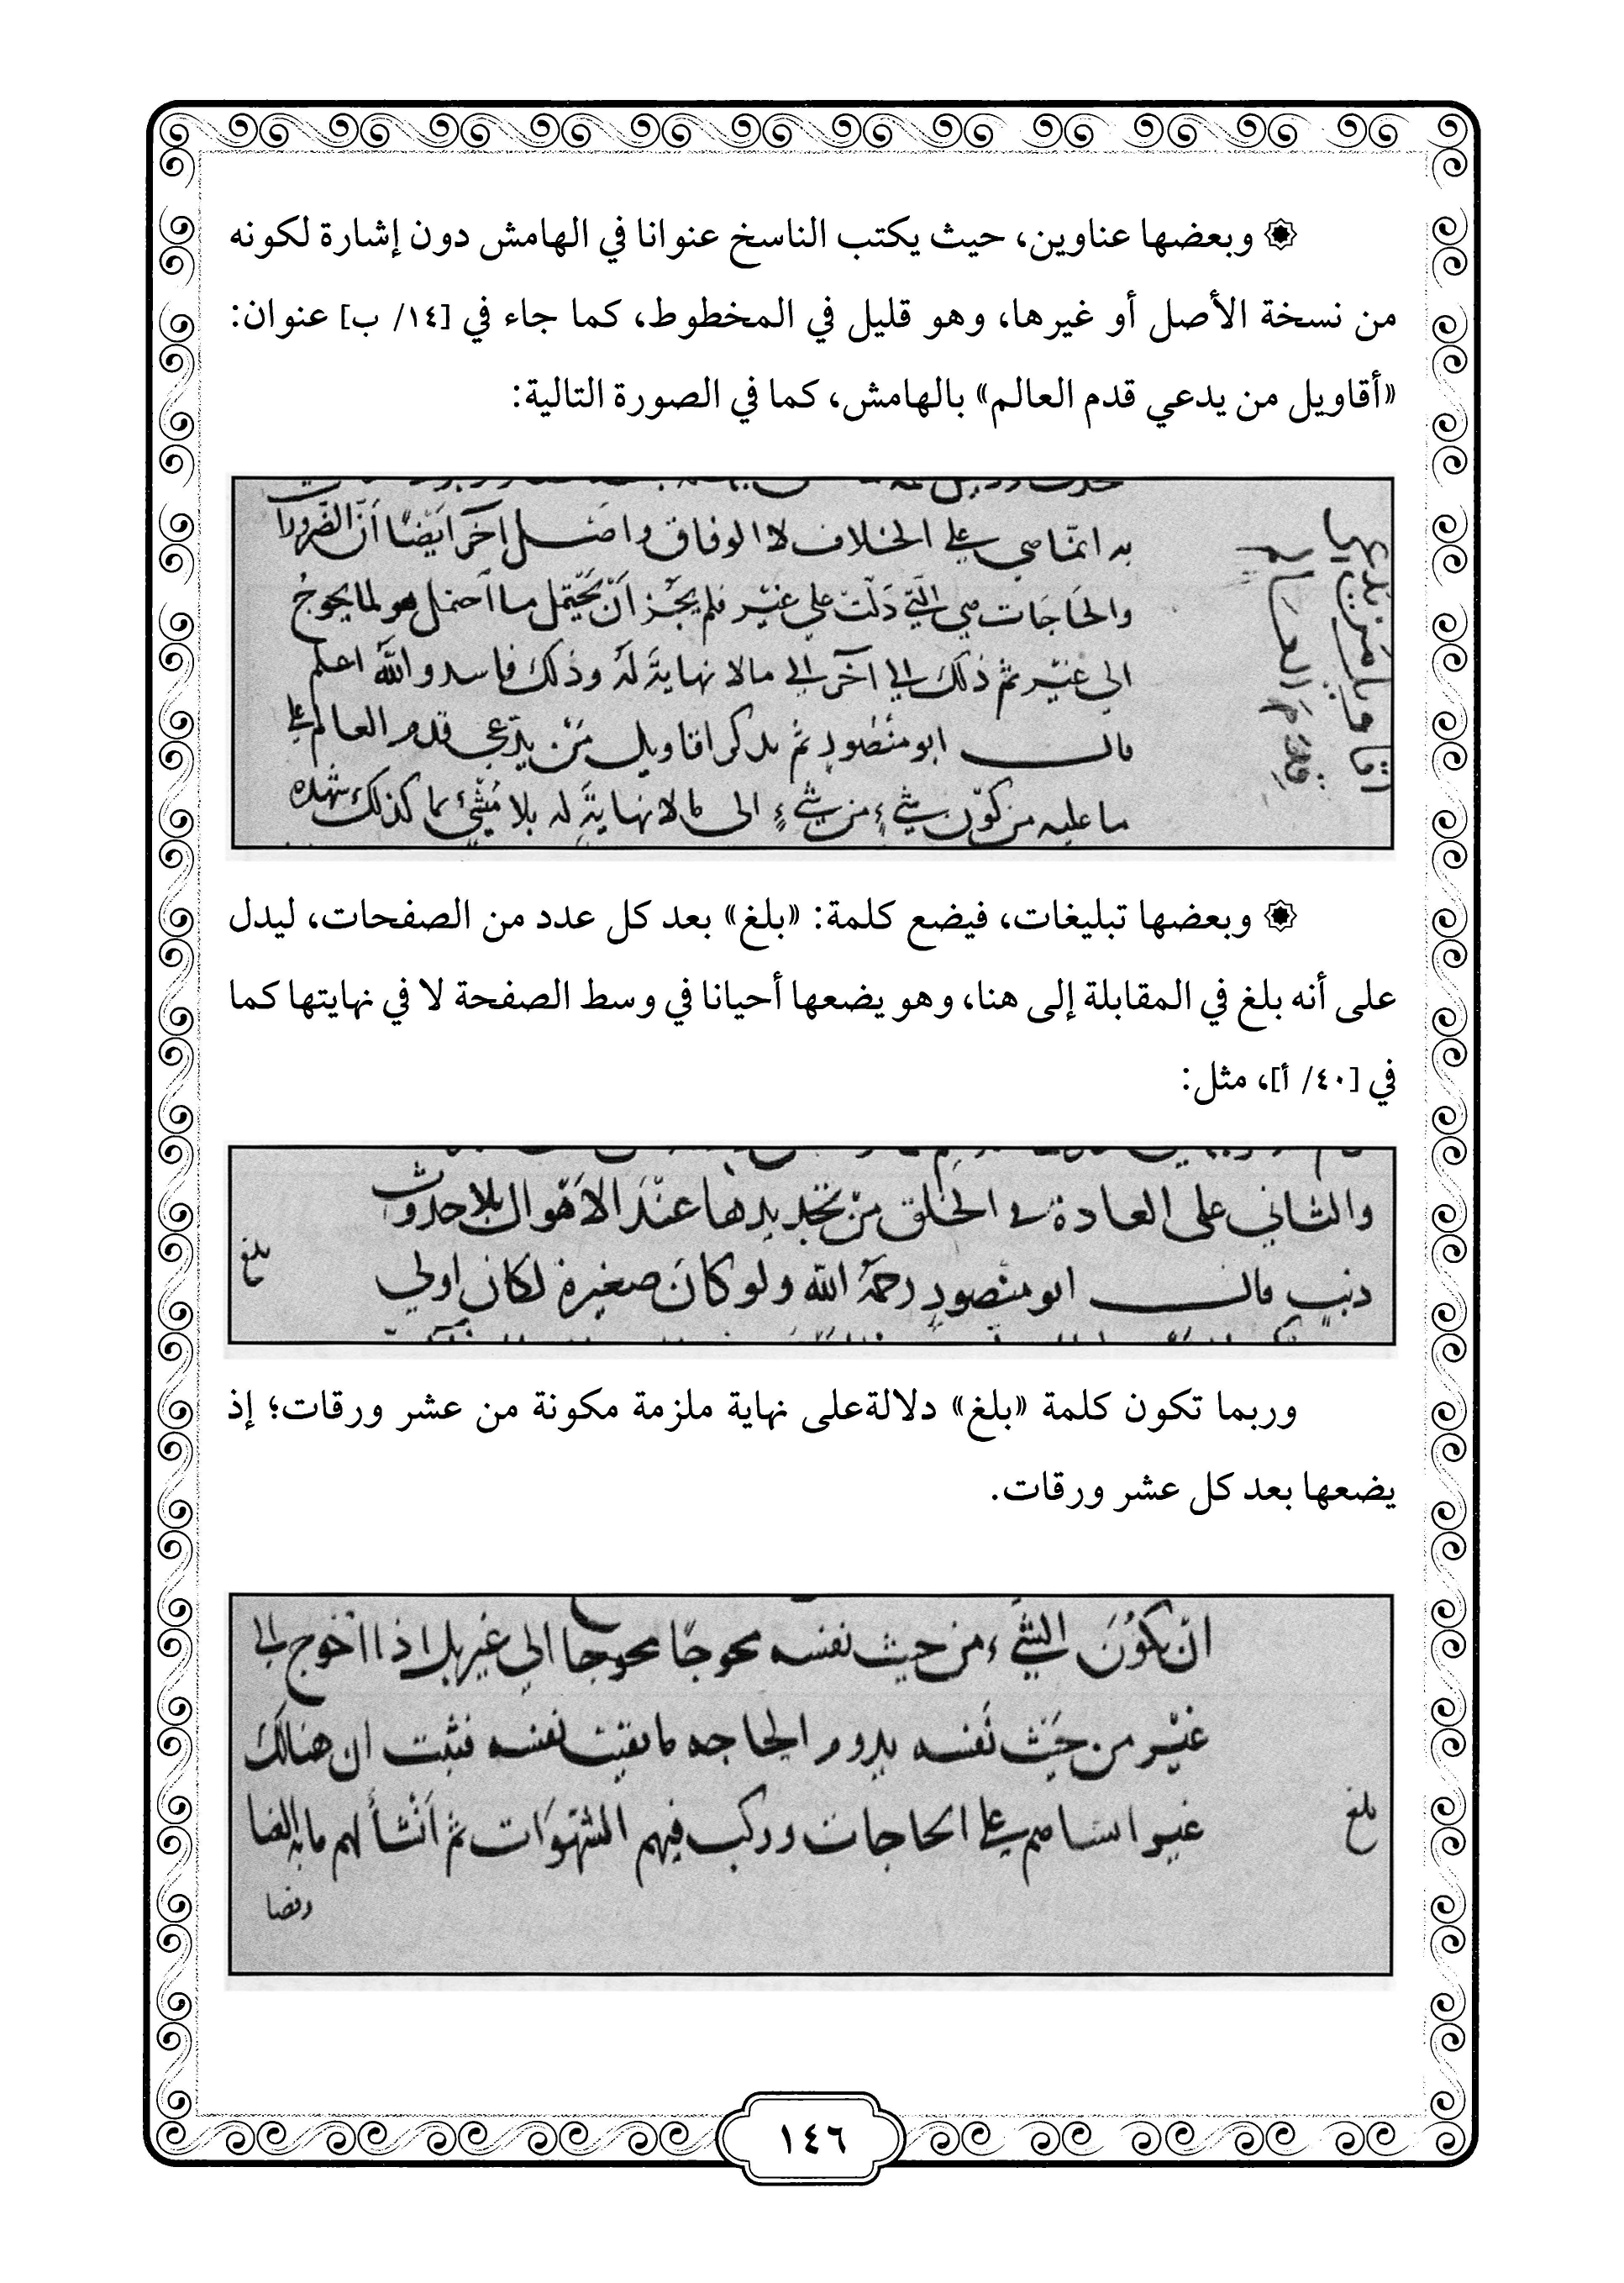 وبعضها عناوين، حيث يكتب الناسخ عنوانا في الهامش دون إشارة لكونه
من نسخة الأصل أو غيرها، وهو قليل في المخطوط، كما جاء في [١٤/ ب] عنوان:
«أقاويل من يدعي قدم العالم» بالهامش، كما في الصورة التالية:
أقاويل من يدعي
قدم العالم
به اتما هي على الخلاف لا الوفاق واصل آخر ايضا أن الضرورا
والحاجات هي التي دلت على غير فلم يجز أن يحتمل ما احتمل هو لما يحوج
الى غير ثم ذلك الى آخر الى مالا نهاية له وذلك فاسد والله اعلم
قال ابو منصور ثم نذكر اقاويل من يدعي قدم العالم على
ما عليه من كون شيء من شيء الى مالا نهاية له بلا منشئ كذلك
وبعضها تبليغات، فيضع كلمة: «بلغ» بعد كل عدد من الصفحات، ليدل
على أنه بلغ في المقابلة إلى هنا، وهو يضعها أحيانا في وسط الصفحة لا في نهايتها كما
في [٤٠/ أ]، مثل:
والثاني على العادة في الخلق من تجديدها عند الاهوال بلا حدوث
ذنب قال ابو منصور رحمه الله ولو كان صغيرة لكان اولى
بلغ
وربما تكون كلمة «بلغ» دلالة على نهاية ملزمة مكونة من عشر ورقات؛ إذ
يضعها بعد كل عشر ورقات.
ان يكون الشيء من حيث نفسه محوجا محوجا الى غير بل اذا احوج الى
غير من حيث نفسه يدوم الحاجه ما بقيت نفسه فثبت ان هنالك
غير انشاهم على الحاجات وركب فيهم الشهوات ثم أنشأ لهم ما به
بلغ
١٤٦